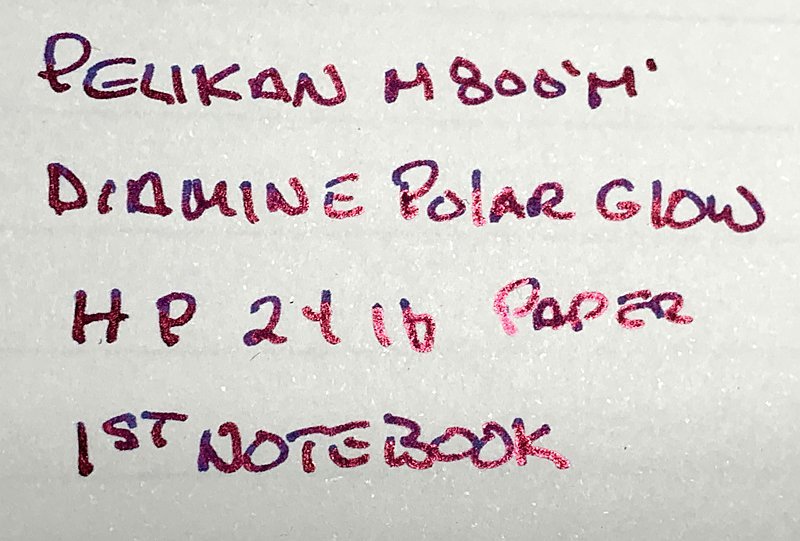 PELIKAN M800 'M'
DIAMINE POLAR GLOW
HP 24 lb PAPER
1ST NOTEBOOK